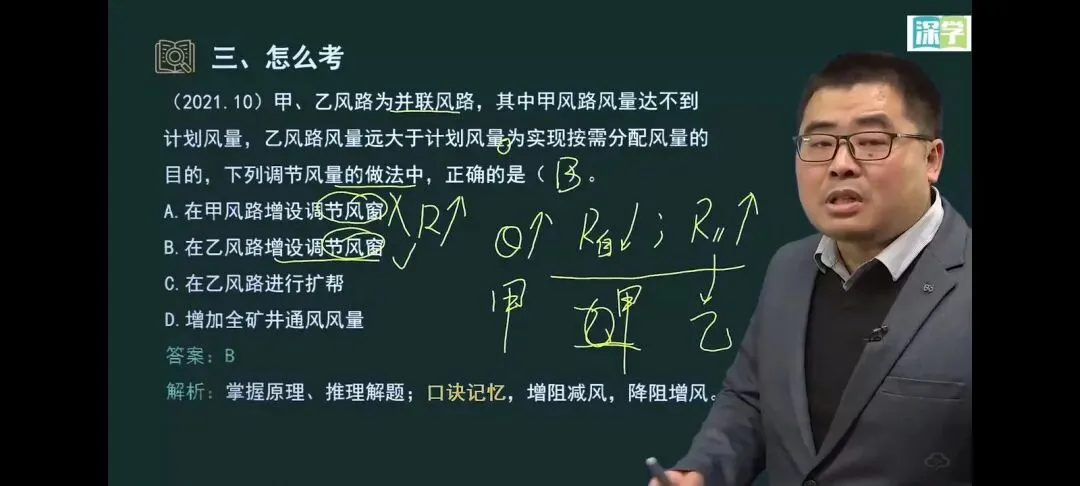 深学
三、怎么考
（2021.10）甲、乙风路为并联风路，其中甲风路风量达不到
计划风量，乙风路风量远大于计划风量为实现按需分配风量的
目的，下列调节风量的做法中，正确的是（ B 。
A.在甲风路增设调节风窗 R↑
B.在乙风路增设调节风窗 ✓
Q↑ R自↓; R∥↑
甲 Q甲 乙
C.在乙风路进行扩帮
D.增加全矿井通风风量
答案：B
解析：掌握原理、推理解题；口诀记忆，增阻减风，降阻增风。